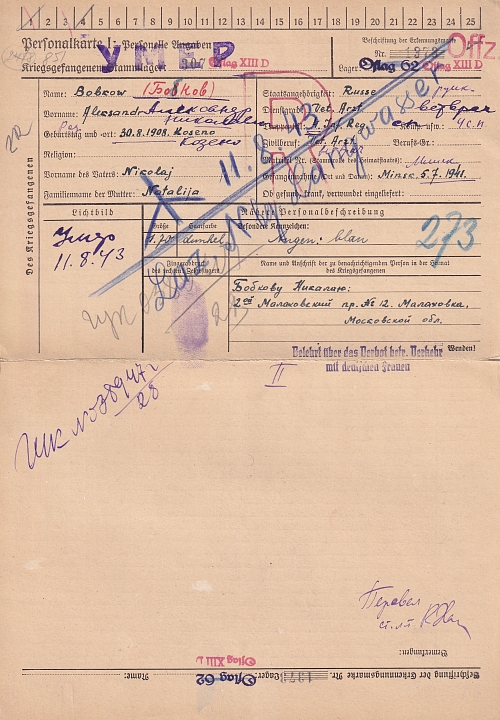 1 2 3 4 5 6 7 8 9 10 11 12 13 14 15 16 17 18 19 20 21 22 23 24 25
Personalkarte I: Personelle Angaben
Kriegsgefangenen-Stammlager: 307 Oflag XIII D
УМЕР
Beschriftung der Erkennungsmarke
Nr. 1373
Lager: Oflag 62 Oflag XIII D
Offz.
Des Kriegsgefangenen
Name: Bobkow (Бобков)
Vorname: Aleksandr Александр
Николаевич
Geburtstag und -ort: 30.8.1908. Koseno
Козено
Religion:
Vorname des Vaters: Nicolaj
Familienname der Mutter: Natalija
Staatsangehörigkeit: Russe
Dienstgrad: Vet. Arzt ветврач
Inf. Reg.
Zivilberuf: Vet. Arzt Berufs-Gr.:
Matrikel Nr. (Stammrolle des Heimatstaates): Минск
Gefangennahme (Ort und Datum): Minsk 5.7.1941.
Ob gesund, krank, verwundet eingeliefert:
11.8.43
Lichtbild
Nähere Personalbeschreibung
Größe Haarfarbe Besondere Kennzeichen:
1.70 dunkel Augen: blau
11.8.43
273
Fingerabdruck
des rechten Zeigefingers
Name und Anschrift der zu benachrichtigenden Person in der Heimat
des Kriegsgefangenen
Бобкову Николаю:
2ой Малаховский пр. № 12. Малаховка,
Московской обл.
Wenden!
Belehrt über das Verbot betr. Verkehr
mit deutschen Frauen
II
28
Перевел
ст. лт.
Bemerkungen:
Beschriftung der Erkennungsmarke Nr. 1373 Lager: Oflag 62 Name:
Oflag XIII D